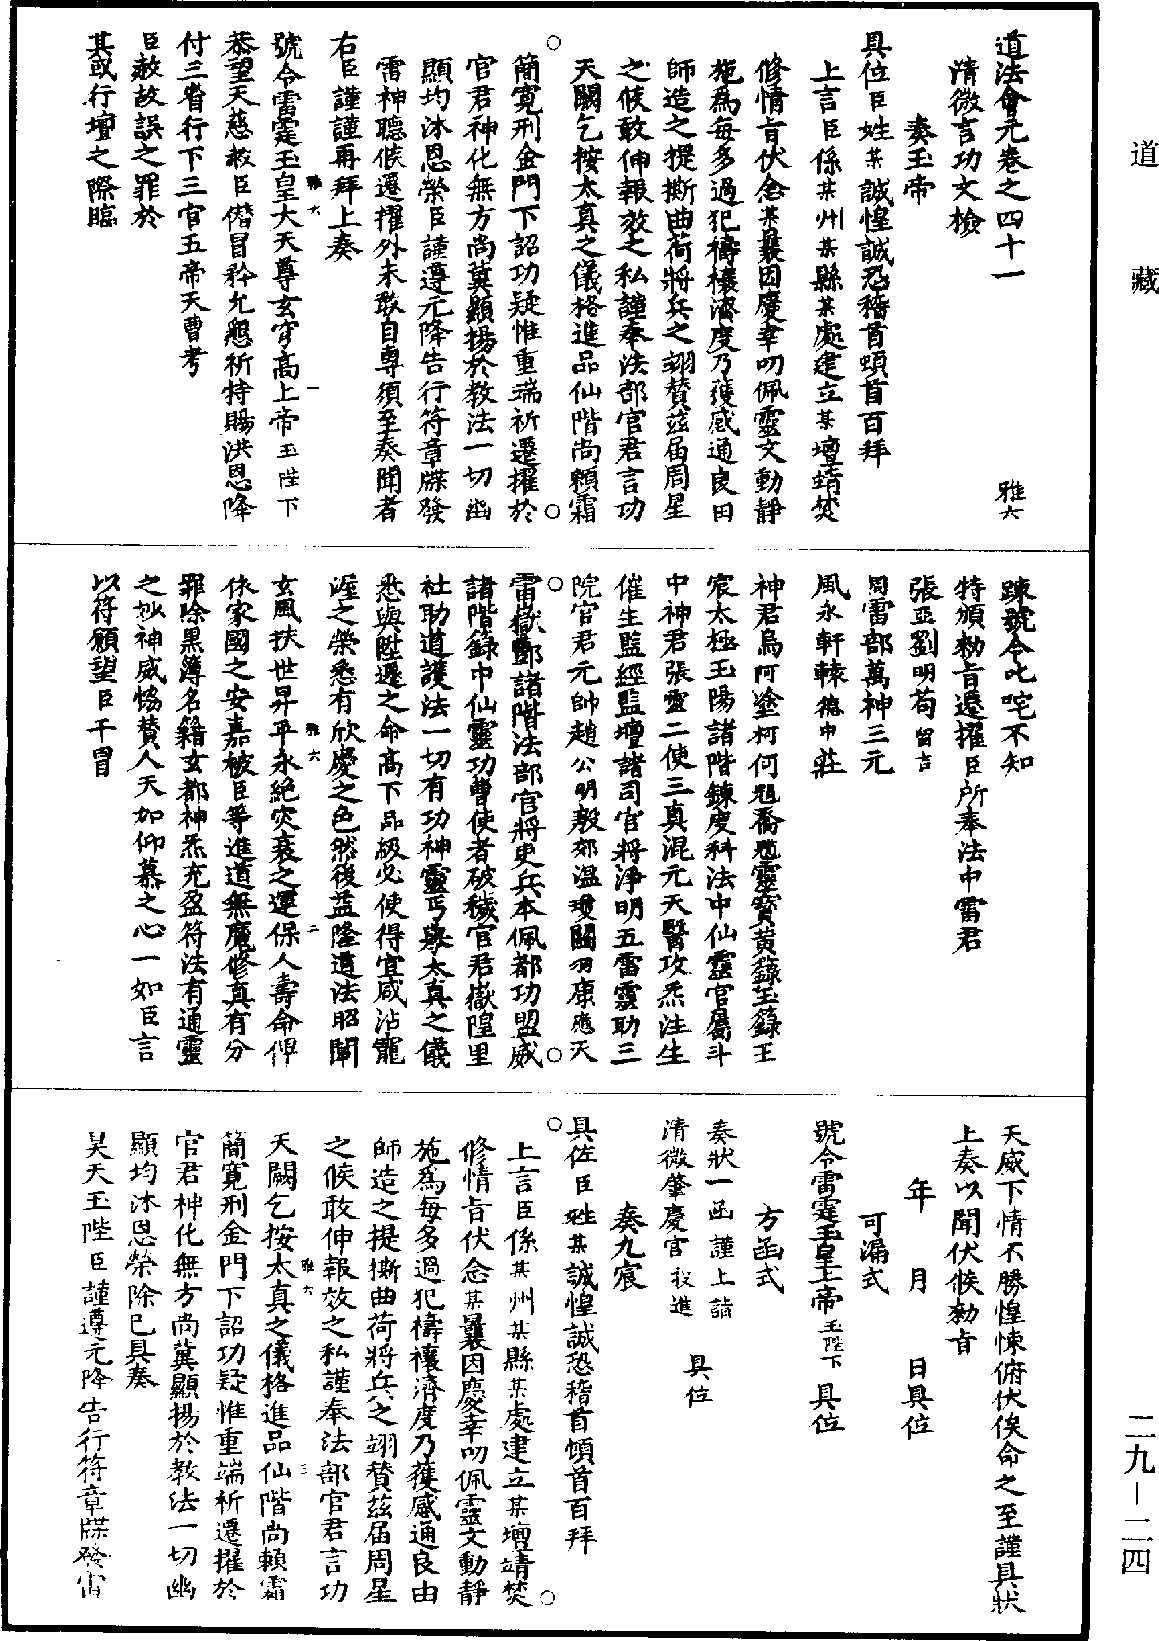 道藏
二九—二四
道法會元卷之四十一 雅六
清微言功文檢
奏玉帝
具位臣姓某誠惶誠恐稽首頓首百拜
上言臣係某州某縣某處建立某壇靖焚
修情旨伏念某曩因慶幸叨佩靈文動靜
施爲每多過犯禱禳濟度乃獲感通良由
師造之提撕曲荷將兵之翊贊茲届周星
之候敢伸報效之私謹奉法部官君言功
天闕乞按太真之儀格進品仙階尚賴霜
簡寛刑金門下詔功疑惟重端祈遷擢於
官君神化無方尚冀顯揚於教法一切幽
顯均沐恩榮臣謹遵元降告行符章牒發
雷神聽候遷擢外未敢自專須至奏聞者
右臣謹謹再拜上奏
號令雷霆玉皇大天尊玄穹高上帝玉陛下
恭望天慈赦臣僭冒矜允懇祈特賜洪恩降
付三省行下三官五帝天曹考
臣赦故誤之罪於
其或行壇之際臨
雅六 一
踈號令叱咤不知
特頒勑旨遷擢臣所奉法中雷君
張亞劉明苟留吉
周雷部萬神三元
風永軒轅德中莊
神君烏阿塗柯何冠喬冠靈寶黃籙玉籙王
宸太極玉陽諸階鍊度科法中仙靈官屬斗
中神君張靈二使三真混元天醫攻炁注生
催生監經監壇諸司官將淨明五雷靈助三
院官君元帥趙公明殷郊温瓊關羽康應天
雷嶽酆諸階法部官將吏兵本佩都功盟威
諸階籙中仙靈功曹使者破穢官君嶽隍里
社助道護法一切有功神靈丐與太真之儀
悉與陞遷之命高下品級必使得宜咸沾寵
渥之榮悉有欣慶之色然後益隆道法昭闡
玄風扶世昇平永絕灾衰之運保人壽命俾
依家國之安嘉被臣等進道無魔修真有分
罪除黑簿名籍玄都神炁充盈符法有通靈
之妙神威恊贊人天如仰慕之心一如臣言
以符願望臣干冒
雅六 二
天威下情不勝惶悚俯伏俟命之至謹具狀
上奏以聞伏候勑旨
年 月 日具位
可漏式
號令雷霆玉皇上帝玉陛下 具位
方函式
奏狀一函謹上詣 具位
清微肇慶宫投進
奏九宸
具位臣姓某誠惶誠恐稽首頓首百拜
上言臣係某州某縣某處建立某壇靖焚
修情旨伏念某曩因慶幸叨佩靈文動靜
施爲每多過犯禱禳濟度乃獲感通良由
師造之提撕曲荷將兵之翊贊茲届周星
之候敢伸報效之私謹奉法部官君言功
天闕乞按太真之儀格進品仙階尚賴霜
簡寛刑金門下詔功疑惟重端祈遷擢於
官君神化無方尚冀顯揚於教法一切幽
顯均沐恩榮除已具奏
昊天玉陛臣謹遵元降告行符章牒發雷
雅六 三